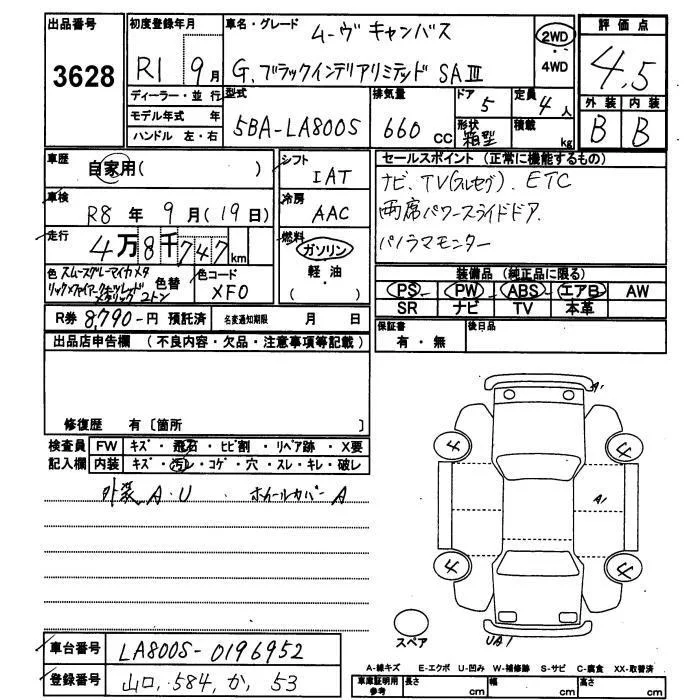 出品番号 初度登録年月 車名・グレード 評価点
3628 R1 9月 ムーヴ キャンバス 2WD 4WD 4.5
G.ブラックインテリアリミテッド SAⅢ
ディーラー・並行 型式 排気量 ドア 5 定員 4人 外装 内装
モデル年式 年 5BA-LA800S 660cc 形状 箱型 積載 kg B B
ハンドル 左・右
車歴 自家用( ) シフト IAT セールスポイント(正常に機能するもの)
車検 R8年 9月(19日) 冷房 AAC ナビ、TV(フルセグ). ETC
両席パワースライドドア.
走行 4万8千747km 燃料 ガソリン パノラマモニター
軽・油
( )
色 スムースグレーマイカメタ 色替 色コード XF0 装備品(純正品に限る)
リック×ファイアークォーツレッド PS PW ABS エアB AW
メタリック 2トン SR ナビ TV 本革
R券 8,790-円 預託済 名変通知期限 月 日 保証書 有・無 後日品
出品店申告欄(不良内容・欠品・注意事項等記載)
修復歴 有〔箇所 〕
検査員 FW キズ・飛石・ヒビ割・リペア跡・X要
記入欄 内装 キズ・汚レ・コゲ・穴・スレ・キレ・破レ
外装 A.U. ホイールカバーA
A1
4 4
A1
4 4
スペア UA1
車台番号 LA800S-0196952
A-線キズ E-エクボ U-凹み W-補修跡 S-サビ C-腐食 XX-取替済
登録番号 山口.584.か.53
車庫証明用参考 長さ cm 幅 cm 高さ cm